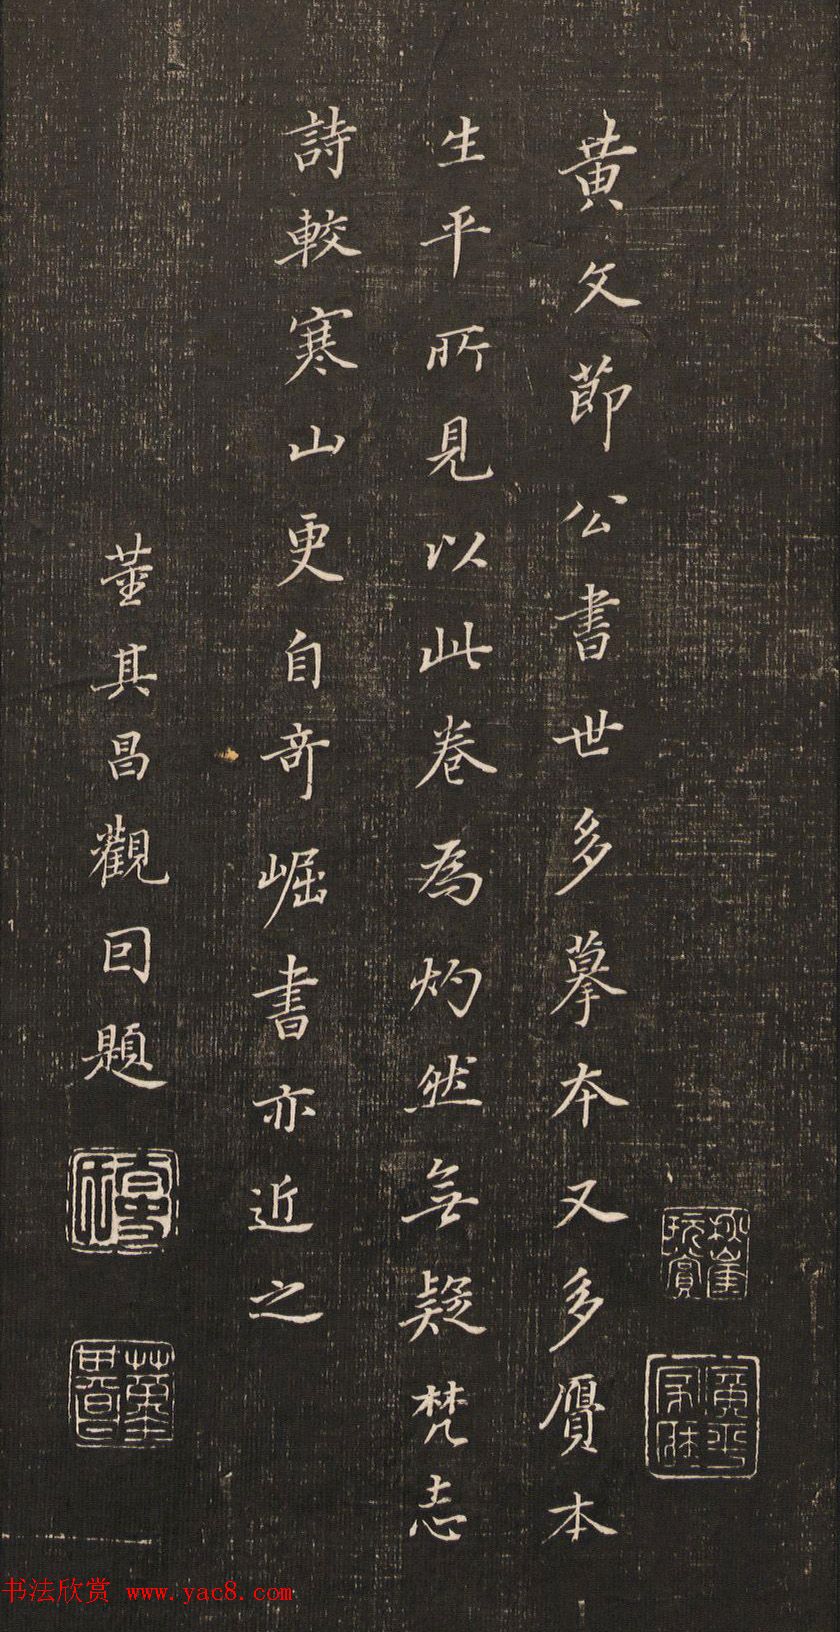 黄文節公書世多摹本又多贋本
生平所見以此卷為灼然無疑梵志
詩較寒山更自奇崛書亦近之
董其昌觀回題
書法欣赏 www.yac8.com